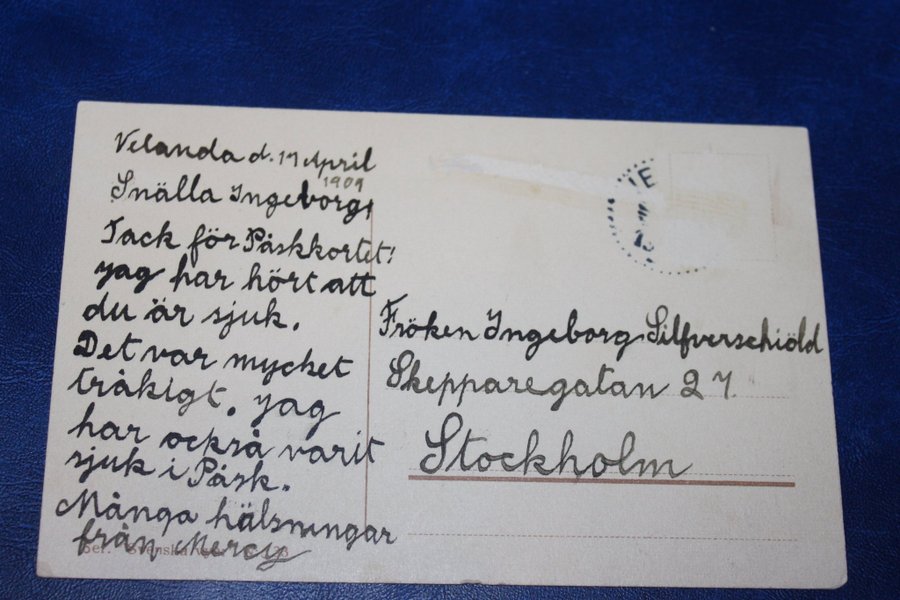 Velanda d. 17 April
1909
Snälla Ingeborg,
Tack för Påskkortet!
jag har hört att
du är sjuk.
Det var mycket
tråkigt. jag
har också varit
sjuk i Påsk.
Många hälsningar
från Mercy
Fröken Ingeborg Silfverschiöld
Skepparegatan 27.
Stockholm